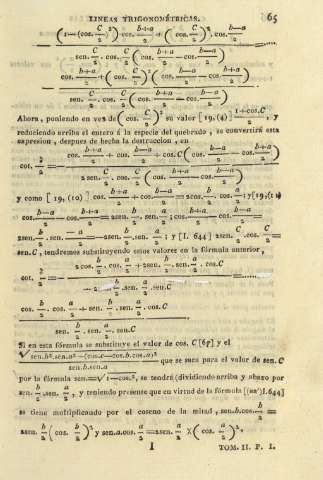 LINEAS TRIGONOMÉTRICAS. 65
(1—(cos. C/2)²) cos. b+a/2 + (cos. C/2)². cos. b—a/2
sen. C/2 . cos. C/2 (cos. b+a/2 — cos. b—a/2)
cos. b+a/2 + (cos. C/2)² (cos. b—a/2 — cos. b+a/2)
sen. C/2 . cos. C/2 (cos. b+a/2 — cos. b—a/2)
Ahora, poniendo en vez de (cos. C/2)² su valor [19,(4)] 1+cos.C/2, y
reduciendo arriba el entero á la especie del quebrado, se convertirá esta
espresion, despues de hecha la destruccion, en
cot. z/2 = cos. b+a/2 + cos. b—a/2 + cos.C (cos. b—a/2 — cos. b+a/2)
2sen. C/2 . cos. C/2 (cos. b+a/2 — cos. b—a/2)
y como [19, (10)] cos. b+a/2 + cos. b—a/2 = 2cos. b/2 . cos. a/2 ; y [19,(11)
cos. b—a/2 — cos. b+a/2 = 2sen. b/2 . sen. a/2 ; cos. b+a/2 — cos. b—a/2 =
2sen. b/2 . sen. — a/2 = —2sen. b/2 . sen. a/2 ; y [I. 644] 2sen. C/2 . cos. C/2 =
sen.C, tendremos substituyendo estos valores en la fórmula anterior,
cot. z/2 = 2cos. b/2 . cos. a/2 + 2sen. b/2 . sen. a/2 . cos.C
—2 b/2 .sen. a/2 .sen.C
cos. b/2 . cos. a/2 + sen. b/2 . sen. a/2 . cos.C
sen. b/2 . sen. a/2 . sen.C
Si en esta fórmula se substituye el valor de cos. C [67] y el
√ sen.b².sen.a²—(cos.c—cos.b.cos.a)²
sen.b.sen.a que se saca para el valor de sen. C
por la fórmula sen.=√1—cos.², se tendrá (dividiendo arriba y abajo por
sen. b/2 .sen. a/2 , y teniendo presente que en virtud de la fórmula [(aa')I.644]
se tiene multiplicando por el coseno de la mitad, sen.b.cos. b/2 =
2sen. b/2 (cos. b/2)² y sen.a.cos. a/2 = 2sen. a/2 X (cos. a/2)²
I TOM. II. P. I.